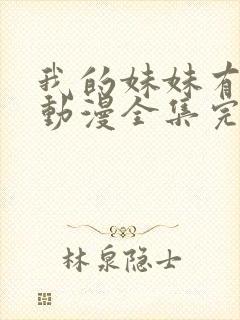 我的妹妹有
動漫全集完
林泉隐士